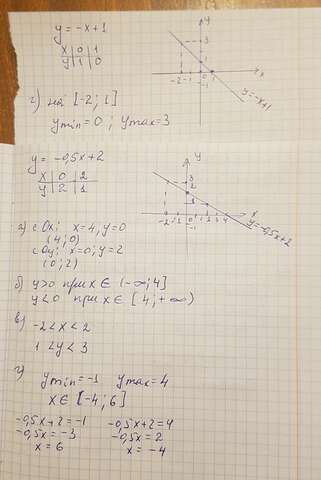 y = -x+1
x 0 1
y 1 0
y
3
1
-2 -1 0 1 x
-1
y=-x+1
г) на [-2; 1]
ymin=0; ymax=3
y = -0,5x+2
x 0 2
y 2 1
y
3
2
1
-2 -1 0 1 2 3 4 x
-1
y=-0,5x+2
а) с Ox; x=4; y=0
(4; 0)
с Oy; x=0; y=2
(0; 2)
б) y>0 при x∈ (-∞; 4]
y<0 при x∈ [4; +∞)
в)
-2<x<2
1<y<3
г)
ymin=-1 ymax=4
x∈ [-4; 6]
-0,5x+2=-1 -0,5x+2=4
-0,5x=-3 -0,5x=2
x=6 x=-4